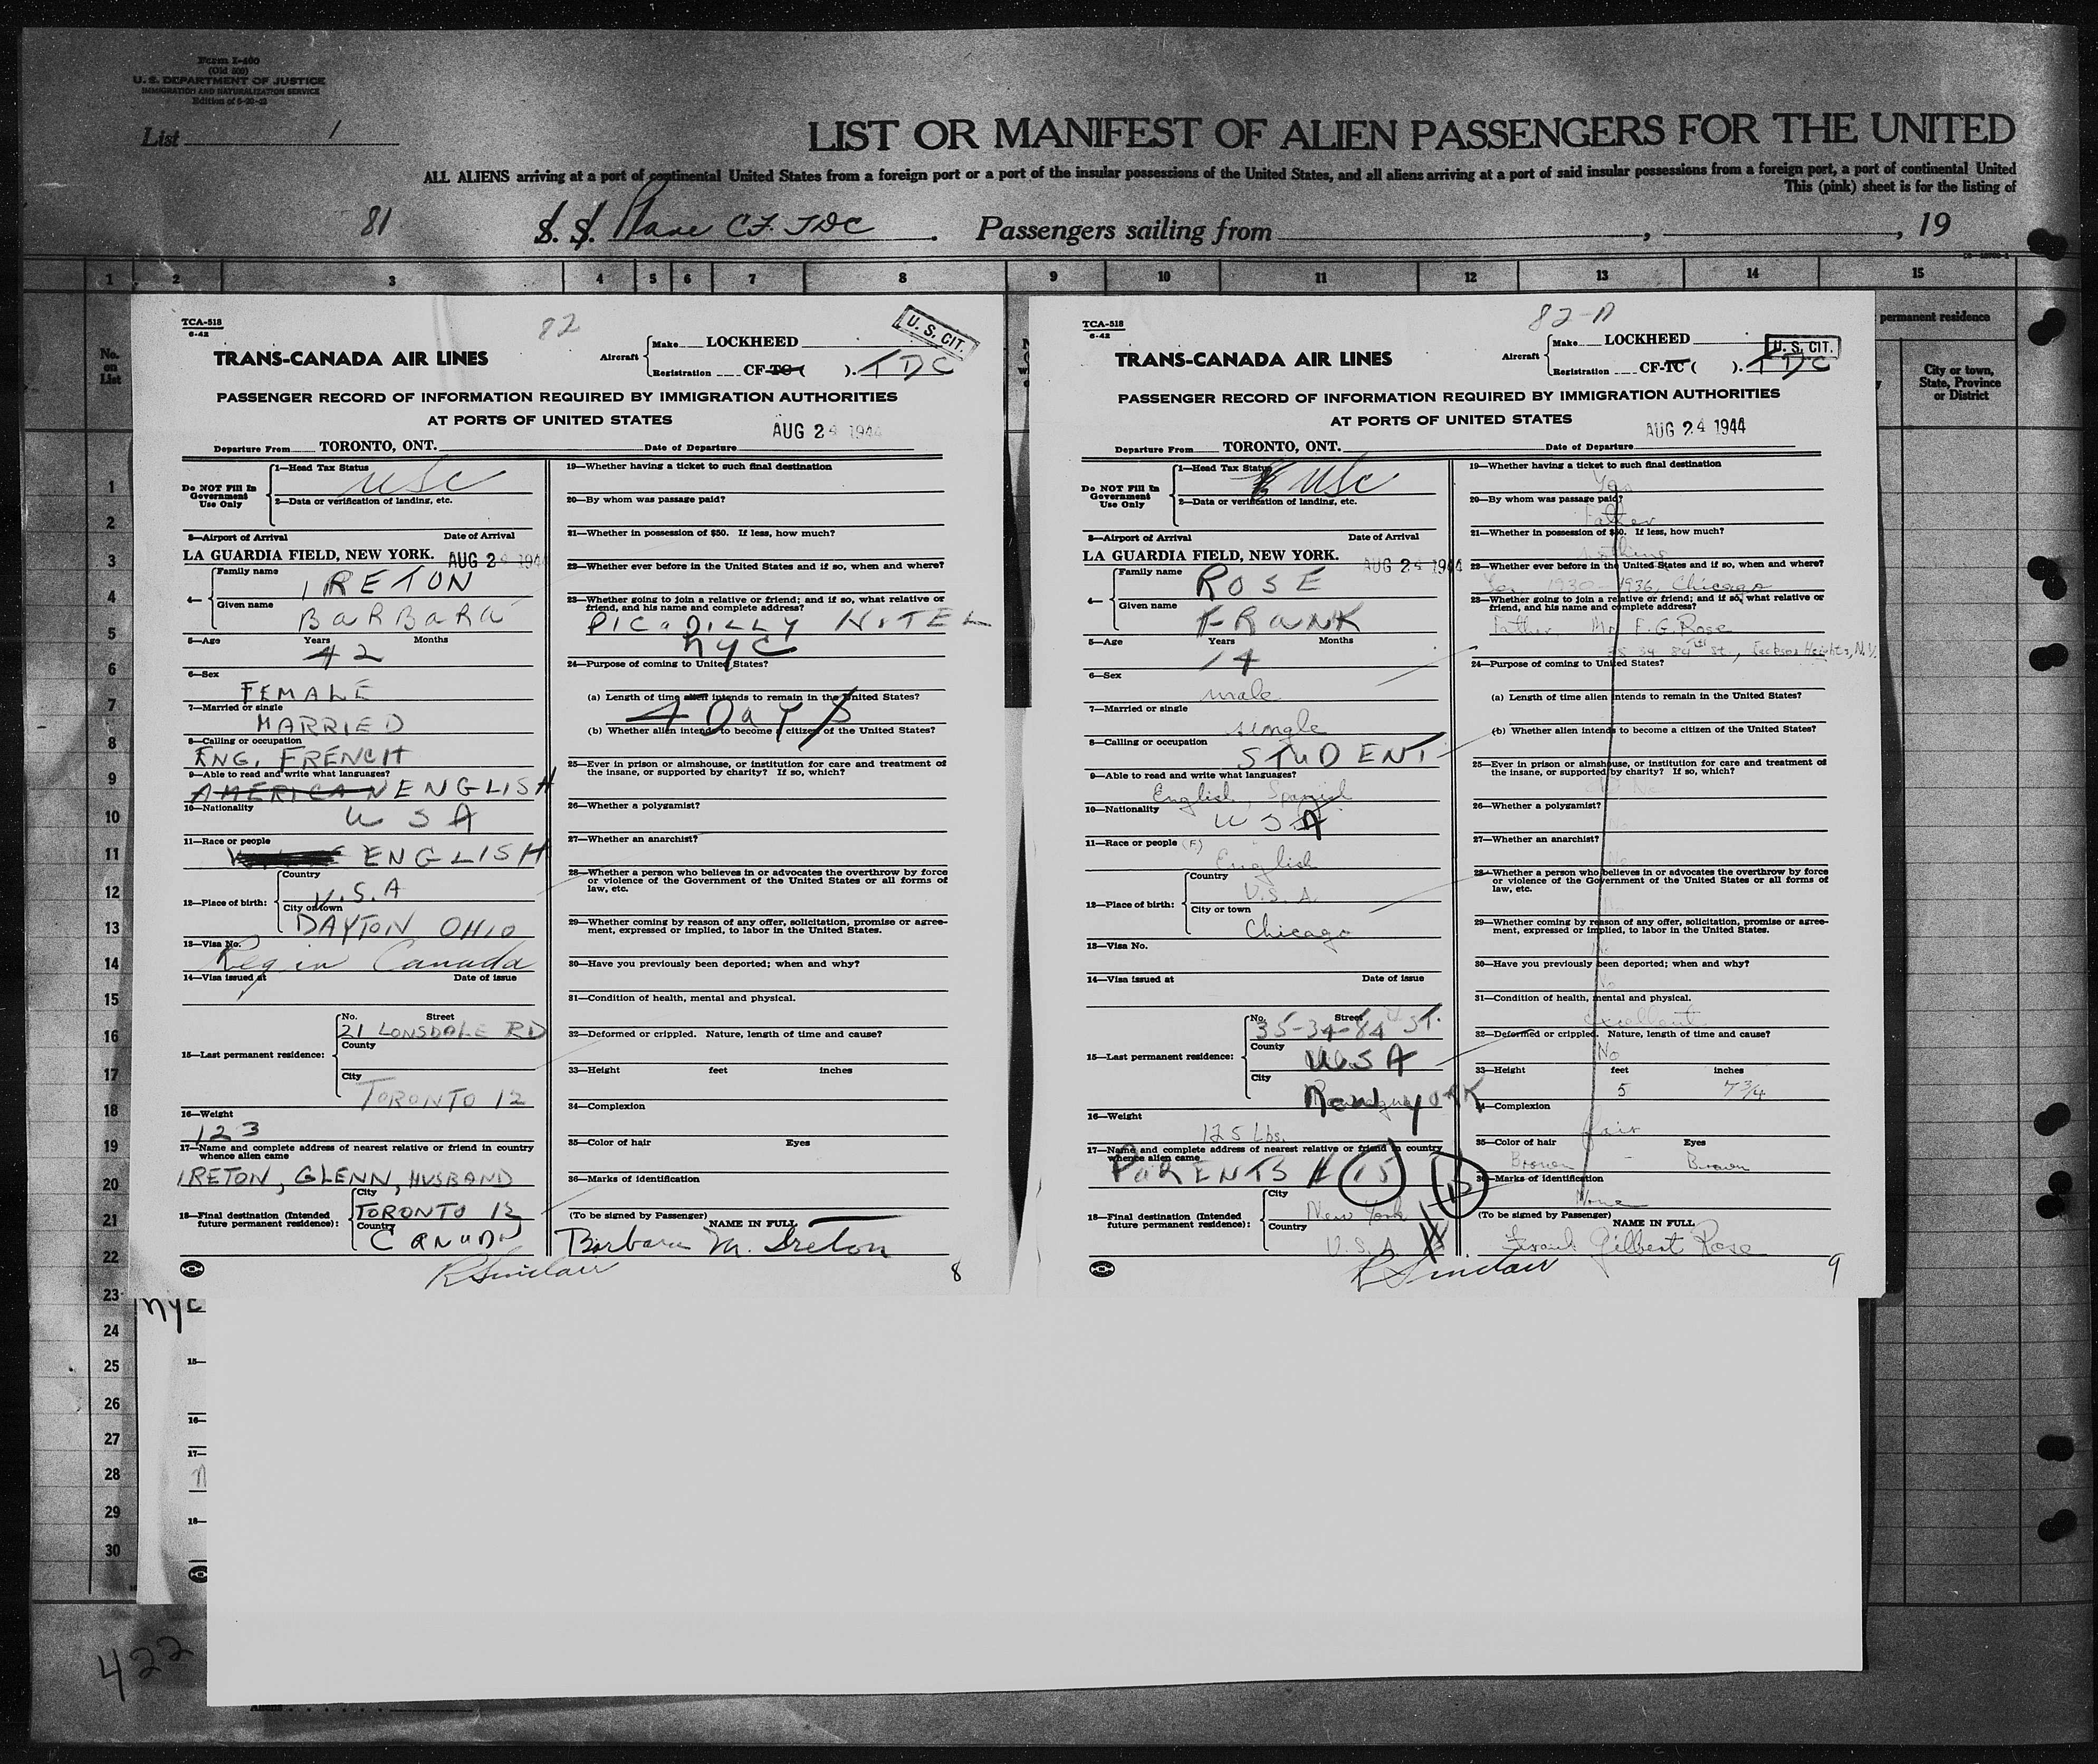 Form I-460
(Old 500)
U. S. DEPARTMENT OF JUSTICE
IMMIGRATION AND NATURALIZATION SERVICE
List 1
LIST OR MANIFEST OF ALIEN PASSENGERS FOR THE UNITED
ALL ALIENS arriving at a port of continental United States from a foreign port or a port of the insular possessions of the United States, and all aliens arriving at a port of said insular possessions from a foreign port, a port of continental United
This (pink) sheet is for the listing of
81 S. S. Plane CF. TDC . Passengers sailing from , , 19
1 2 3 4 5 6 7 8 9 10 11 12 13 14 15
No.
on
List
permanent residence
City or town,
State, Province
or District
1
2
3
4
5
6
7
8
9
10
11
12
13
14
15
16
17
18
19
20
21
22
23
24
25
26
27
28
29
30
TCA-518
6-42
82
U. S. CIT.
TRANS-CANADA AIR LINES
Aircraft
Make LOCKHEED
Registration CF-TC ( ). TDC
PASSENGER RECORD OF INFORMATION REQUIRED BY IMMIGRATION AUTHORITIES
AT PORTS OF UNITED STATES
AUG 24 1944
Departure From TORONTO, ONT. Date of Departure
Do NOT Fill In
Government
Use Only
1—Head Tax Status
USC
2—Data or verification of landing, etc.
3—Airport of Arrival Date of Arrival
LA GUARDIA FIELD, NEW YORK. AUG 24 1944
4—
Family name
IRETON
Given name
BARBARA
5—Age Years Months
42
6—Sex
FEMALE
7—Married or single
MARRIED
8—Calling or occupation
ENG. FRENCH
9—Able to read and write what languages?
AMERICAN ENGLISH
10—Nationality
USA
11—Race or people
ENGLISH
12—Place of birth:
Country
U.S.A
City or town
DAYTON OHIO
13—Visa No.
Reg in Canada
14—Visa issued at Date of issue
15—Last permanent residence:
No. Street
21 LONSDALE RD
County
City
TORONTO 12
16—Weight
123
17—Name and complete address of nearest relative or friend in country
whence alien came
IRETON, GLENN, HUSBAND
18—Final destination (Intended
future permanent residence):
City
TORONTO 12
Country
CANADA
R Sinclair
19—Whether having a ticket to such final destination
20—By whom was passage paid?
21—Whether in possession of $50. If less, how much?
22—Whether ever before in the United States and if so, when and where?
23—Whether going to join a relative or friend; and if so, what relative or
friend, and his name and complete address?
PICADILLY HOTEL
NYC
24—Purpose of coming to United States?
(a) Length of time alien intends to remain in the United States?
4 Days
(b) Whether alien intends to become a citizen of the United States?
25—Ever in prison or almshouse, or institution for care and treatment of
the insane, or supported by charity? If so, which?
26—Whether a polygamist?
27—Whether an anarchist?
28—Whether a person who believes in or advocates the overthrow by force
or violence of the Government of the United States or all forms of
law, etc.
29—Whether coming by reason of any offer, solicitation, promise or agree-
ment, expressed or implied, to labor in the United States.
30—Have you previously been deported; when and why?
31—Condition of health, mental and physical.
32—Deformed or crippled. Nature, length of time and cause?
33—Height feet inches
34—Complexion
35—Color of hair Eyes
36—Marks of identification
(To be signed by Passenger) NAME IN FULL
Barbara M. Ireton
8
TCA-518
6-42
82-A
U. S. CIT.
TRANS-CANADA AIR LINES
Aircraft
Make LOCKHEED
Registration CF-TC ( ). TDC
PASSENGER RECORD OF INFORMATION REQUIRED BY IMMIGRATION AUTHORITIES
AT PORTS OF UNITED STATES
AUG 24 1944
Departure From TORONTO, ONT. Date of Departure
Do NOT Fill In
Government
Use Only
1—Head Tax Status
USC
2—Data or verification of landing, etc.
3—Airport of Arrival Date of Arrival
LA GUARDIA FIELD, NEW YORK. AUG 24 1944
4—
Family name
ROSE
Given name
FRANK
5—Age Years Months
14
6—Sex
male
7—Married or single
single
8—Calling or occupation
STUDENT
9—Able to read and write what languages?
English, Spanish
10—Nationality
USA
11—Race or people (F)
English
12—Place of birth:
Country
U.S.A
City or town
Chicago
13—Visa No.
14—Visa issued at Date of issue
15—Last permanent residence:
No. Street
35-34-84 ST.
County
USA
City
16—Weight
125 Lbs.
17—Name and complete address of nearest relative or friend in country
whence alien came
PARENTS # 15 15
18—Final destination (Intended
future permanent residence):
City
New York
Country
U.S.A.
R Sinclair
19—Whether having a ticket to such final destination
Yes
20—By whom was passage paid?
Father
21—Whether in possession of $50. If less, how much?
nothing
22—Whether ever before in the United States and if so, when and where?
Yes, 1930-1936, Chicago
23—Whether going to join a relative or friend; and if so, what relative or
friend, and his name and complete address?
Father, Mr F.G. Rose
35 34 84th St., Jackson Heights, N.Y.
24—Purpose of coming to United States?
(a) Length of time alien intends to remain in the United States?
(b) Whether alien intends to become a citizen of the United States?
25—Ever in prison or almshouse, or institution for care and treatment of
the insane, or supported by charity? If so, which?
No
26—Whether a polygamist?
No
27—Whether an anarchist?
No
28—Whether a person who believes in or advocates the overthrow by force
or violence of the Government of the United States or all forms of
law, etc.
No
29—Whether coming by reason of any offer, solicitation, promise or agree-
ment, expressed or implied, to labor in the United States.
No
30—Have you previously been deported; when and why?
No
31—Condition of health, mental and physical.
Excellent
32—Deformed or crippled. Nature, length of time and cause?
No
33—Height feet inches
5 7 3/4
34—Complexion
fair
35—Color of hair Eyes
Brown Brown
36—Marks of identification
None
(To be signed by Passenger) NAME IN FULL
Frank Gilbert Rose
9
NYC
15—
16—
17—
18—
422